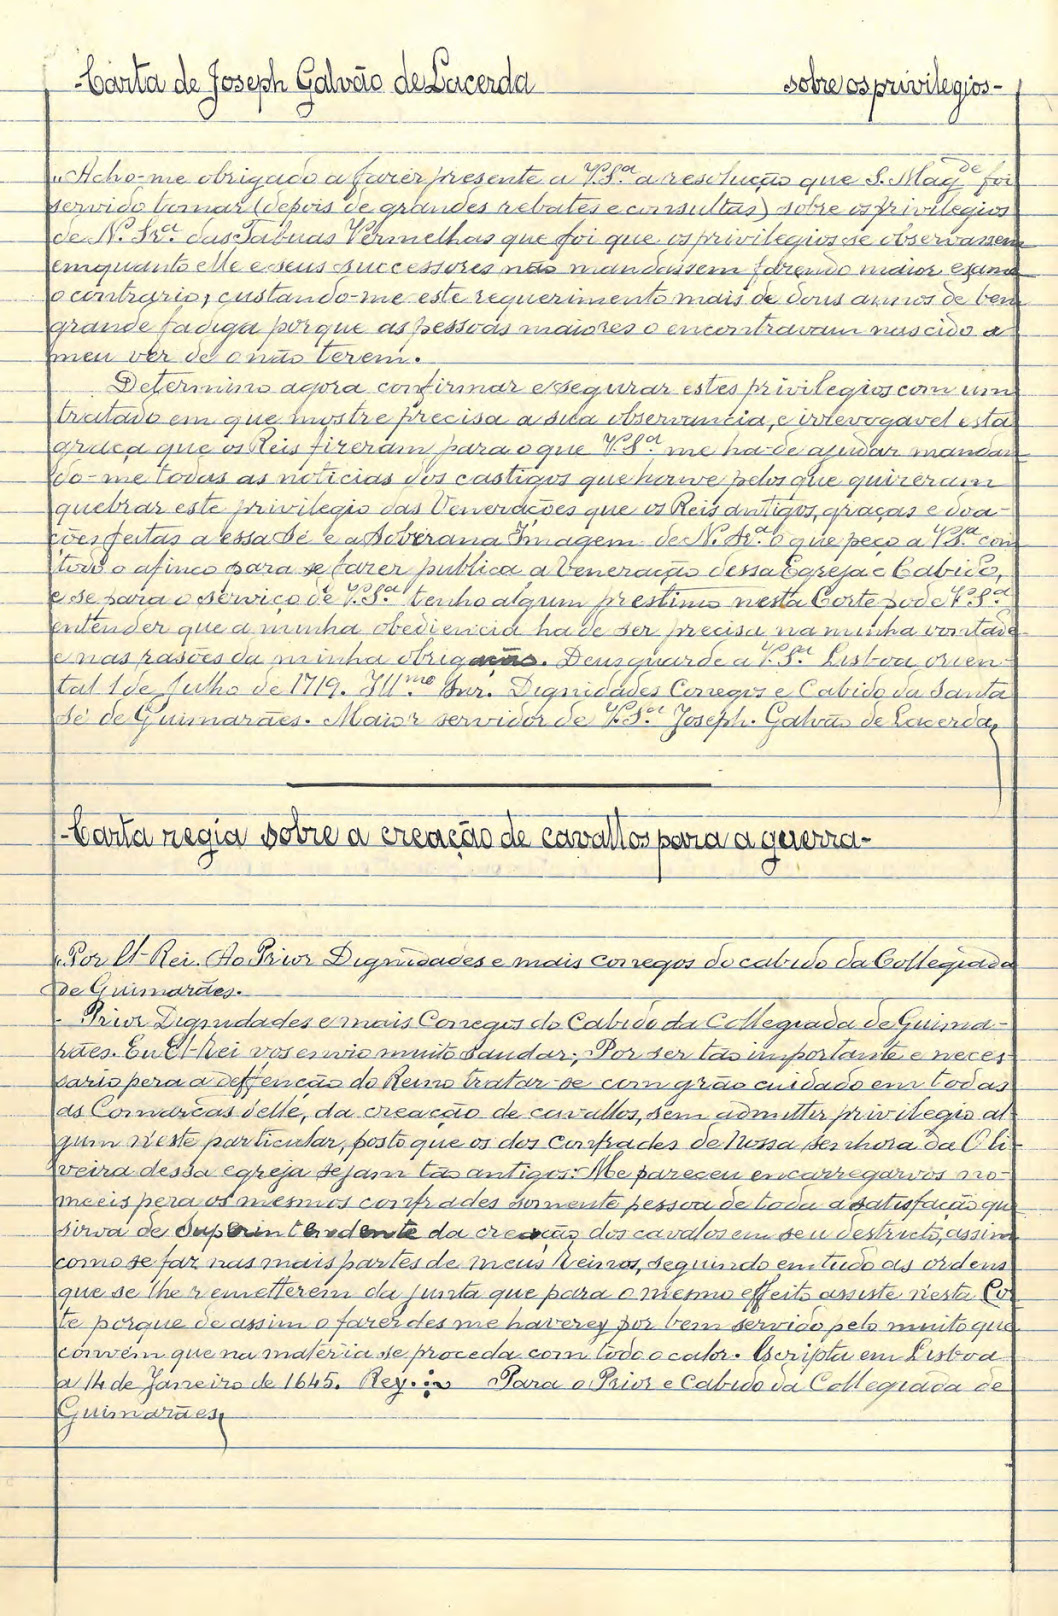 -Carta de Joseph Galvão de Lacerda sobre os privilegios-
"Acho-me obrigado a fazer presente a V.Sª a resolução que S. Magde foi
servido tomar (depois de grandes rebates e consultas) sobre os privilegios
de N. Srª. das Tabuas Vermelhas que foi que os privilegios se observassem
emquanto elle e seus successores não mandassem fazendo maior exame
o contrario, custando-me este requerimento mais de dous annos de bem
grande fadiga porque as pessoas maiores o encontravam nascido a
meu ver de o não terem.
Determino agora confirmar e segurar estes privilegios com um
tratado em que mostre precisa a sua observancia, e irrevogavel esta
graça que os Reis fizeram para o que V.Sª. me ha-de ajudar mandan-
do-me todas as noticias dos castigos que houve pelos que quizeram
quebrar este privilegio das Venerações que os Reis antigos, graças e doa-
ções feitas a essa Sé e a Soberana Imagem de N. Srª. o que peço a V.Sª. com
todo o afinco para se fazer publica a Veneração dessa Egreja e Cabido,
e se para o serviço de V.Sª. tenho algum prestimo nesta Corte pode V.Sª.
entender que a minha obediencia ha de ser precisa na minha vontade
e nas rasões da minha obrigação. Deus guarde a V.Sª. Lisboa orien-
tal 1 de Julho de 1719. Illmo Snr. Dignidades Conegos e Cabido da Santa
Sé de Guimarães. Maior servidor de V.Sª. Joseph. Galvão de Lacerda,
-Carta regia sobre a creação de cavallos para a guerra-
"Por El-Rei. Ao Prior Dignidades e mais conegos do cabido da Collegiada
de Guimarães.
- Prior Dignidades e mais Conegos do Cabido da Collegiada de Guima-
rães. Eu El-Rei vos envio muito saudar; Por ser tão importante e neces-
sario pera a deffenção do Reino tratar-se com grão cuidado em todas
as Comarcas d'elle, da creação de cavallos, sem admittir privilegio al-
gum n'este particular, posto que os dos confrades de Nossa senhora da Oli-
veira dessa egreja sejam tão antigos: Me pareceu encarregarvos no-
meeis pera os mesmos confrades somente pessoa de toda a satisfação que
sirva de superintendente da creação dos cavalos em seu destricto, assim
como se faz nas mais partes de meus Reinos, seguindo em tudo as ordens
que se lhe remetterem da junta que para o mesmo effeito assiste n'esta Cor-
te porque de assim o fazerdes me haverey por bem servido pelo muito que
convém que na materia se proceda com todo o calor. Escripta em Lisboa
a 14 de Janeiro de 1645. Rey. :~ Para o Prior e Cabido da Collegiada de
Guimarães,